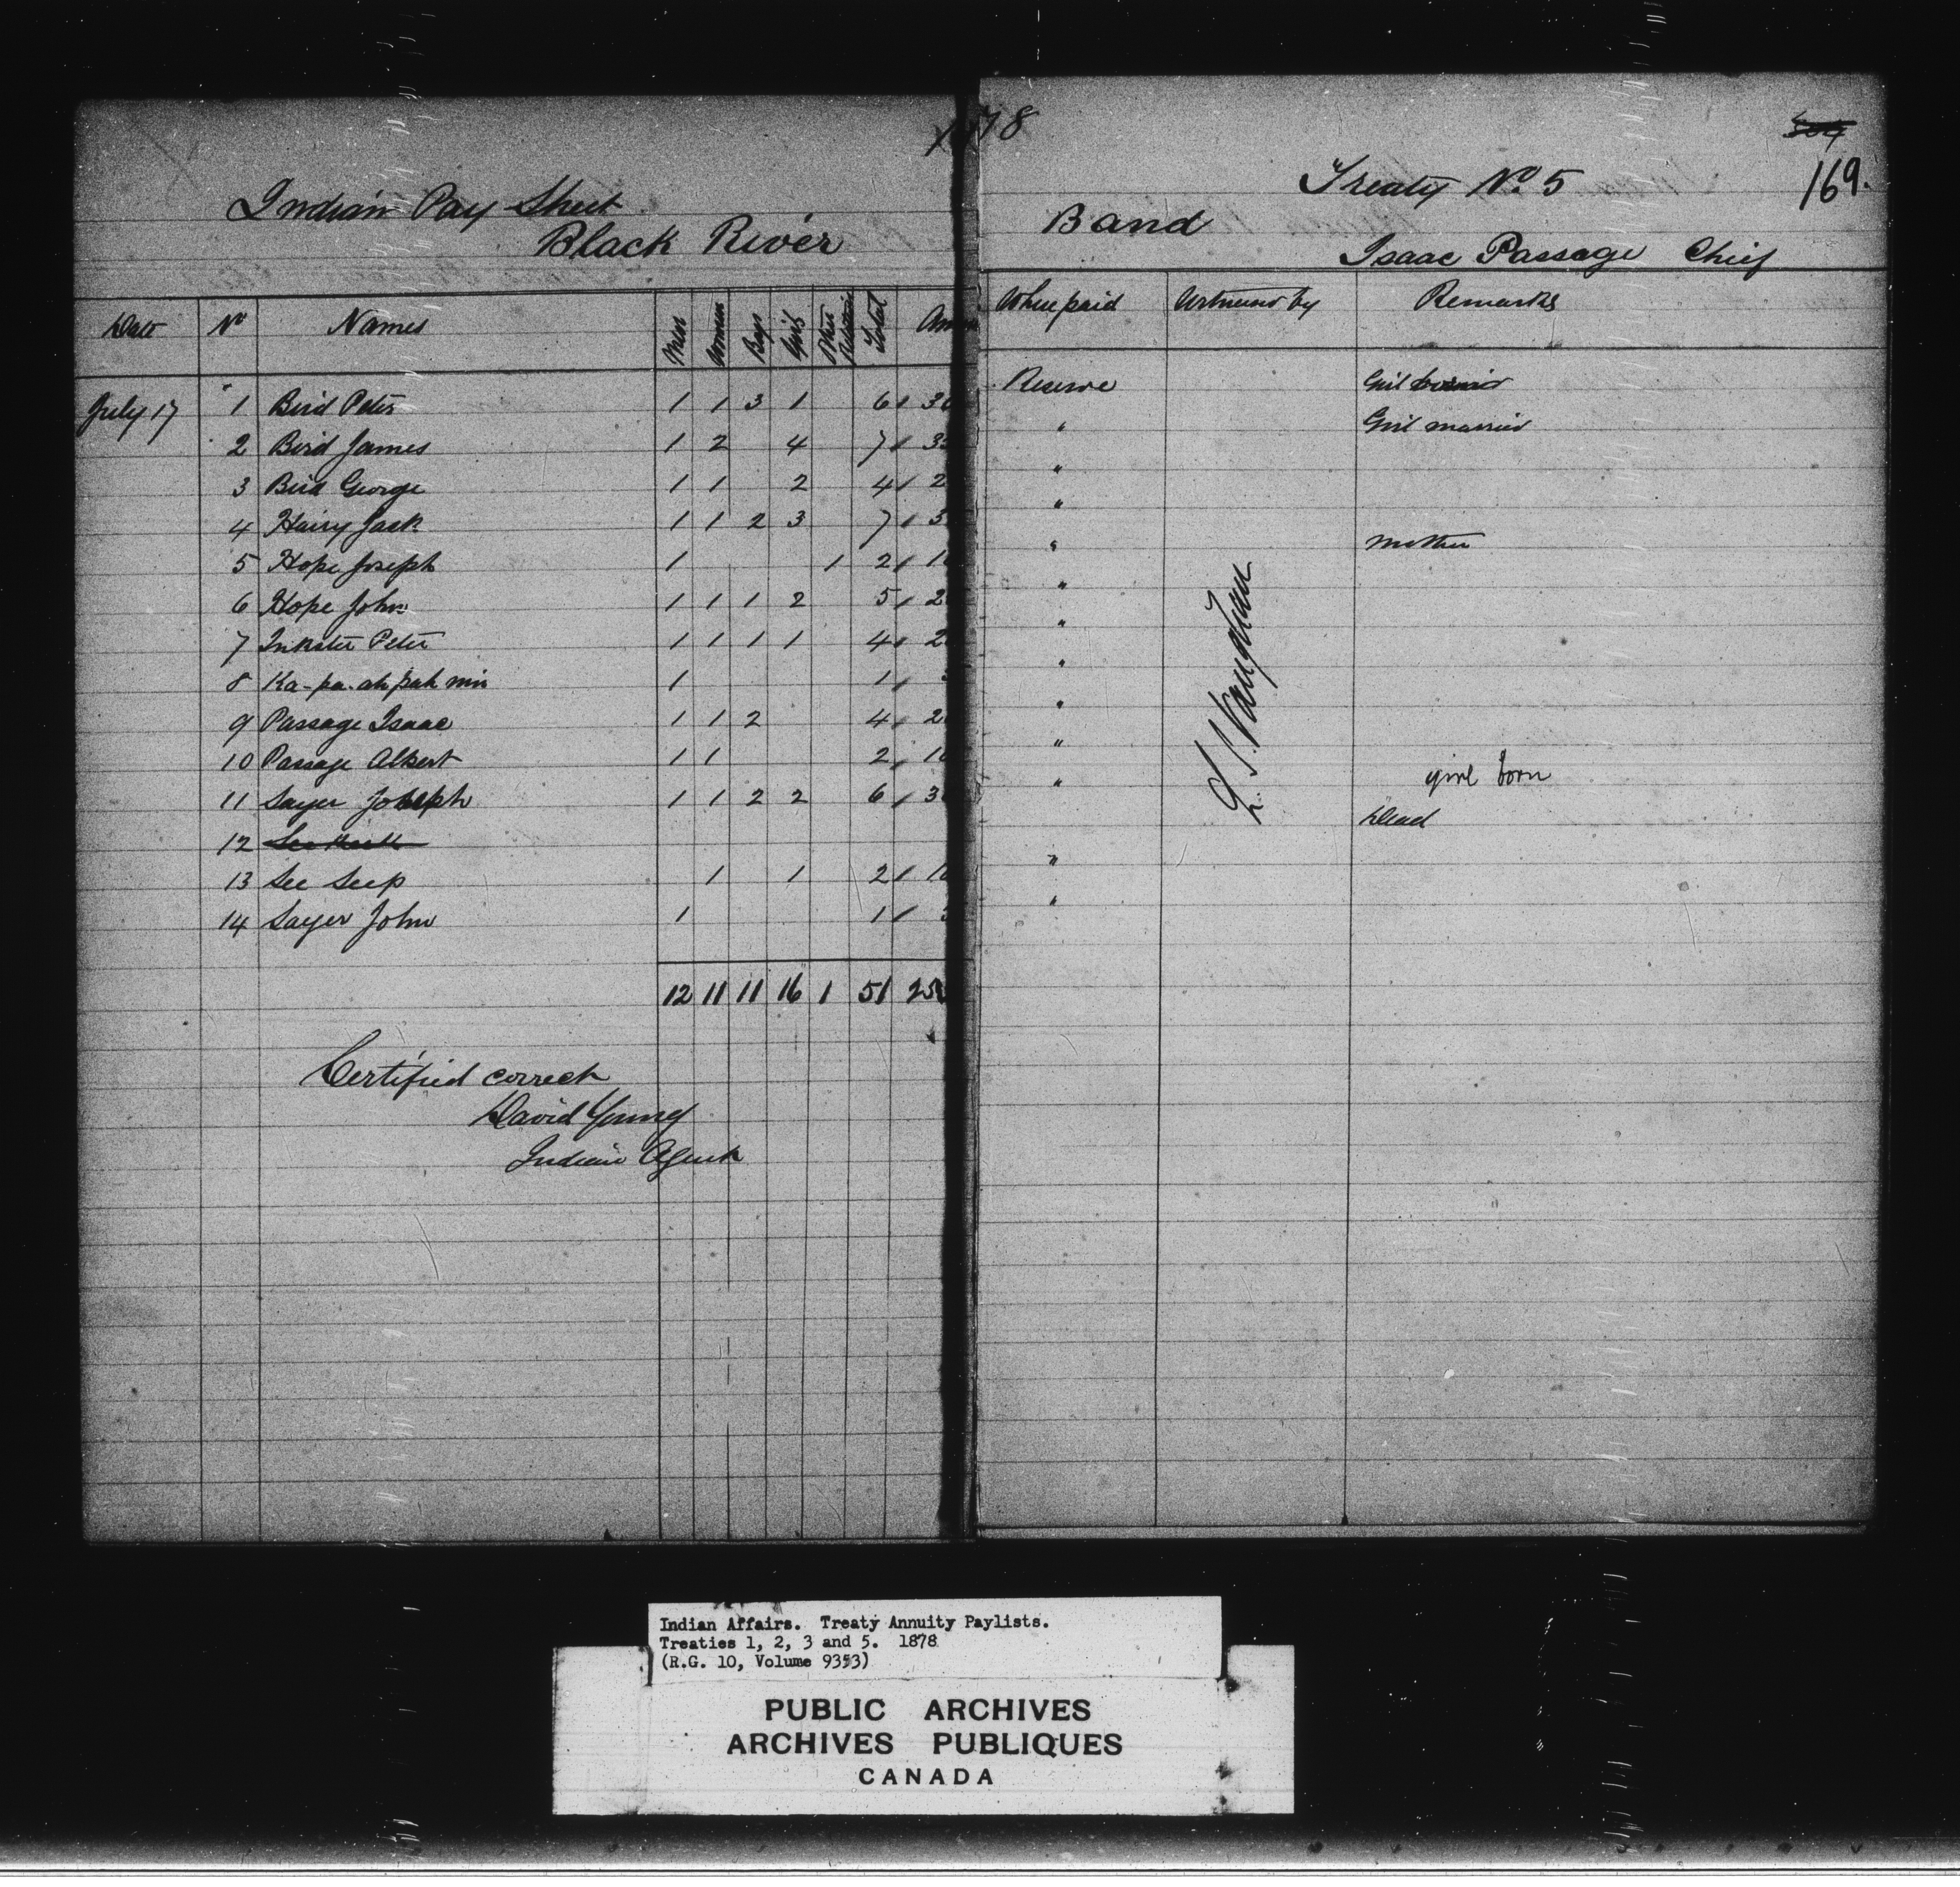 1878
Indian Pay Sheet
Black River
Date No Names Men Women Boys Girls Other Relations Total Am
July 17 1 Bird Peter 1 1 3 1 6 30
2 Bird James 1 2 4 7 35
3 Bird George 1 1 2 4 2
4 Hairy Jack 1 1 2 3 7 3
5 Hope Joseph 1 1 2 1
6 Hope John 1 1 1 2 5 2
7 Inkster Peter 1 1 1 1 4 2
8 Ka-pa-ah pah min 1 1
9 Passage Isaac 1 1 2 4 2
10 Passage Albert 1 1 2 10
11 Sayer Joseph 1 1 2 2 6 3
12
13 See Seep 1 1 2 10
14 Sayer John 1 1
12 11 11 16 1 51 25
Certified correct
David Young
Indian Agent
169.
Treaty No 5
Band
Isaac Passage Chief
Where paid Witnessed by Remarks
Reserve Girl
" Girl married
"
"
" Mother
"
"
"
"
"
" girl born
Dead
"
"
Vaughan
Indian Affairs. Treaty Annuity Paylists.
Treaties 1, 2, 3 and 5. 1878
(R.G. 10, Volume 9353)
PUBLIC ARCHIVES
ARCHIVES PUBLIQUES
CANADA